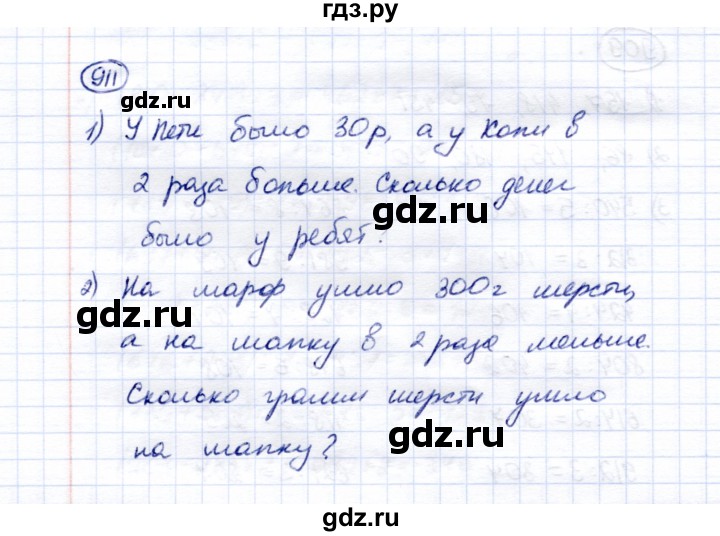 гдз.ру
911
gdz.ru
1) У Пети было 30р, а у Коли в
2 раза больше. Сколько денег
gdz.ru
было у ребят?
2) На шарф ушло 300г шерсти,
gdz.ru
а на шапку в 2 раза меньше.
Сколько грамм шерсти ушло
gdz.ru
на шапку?
gdz.ru